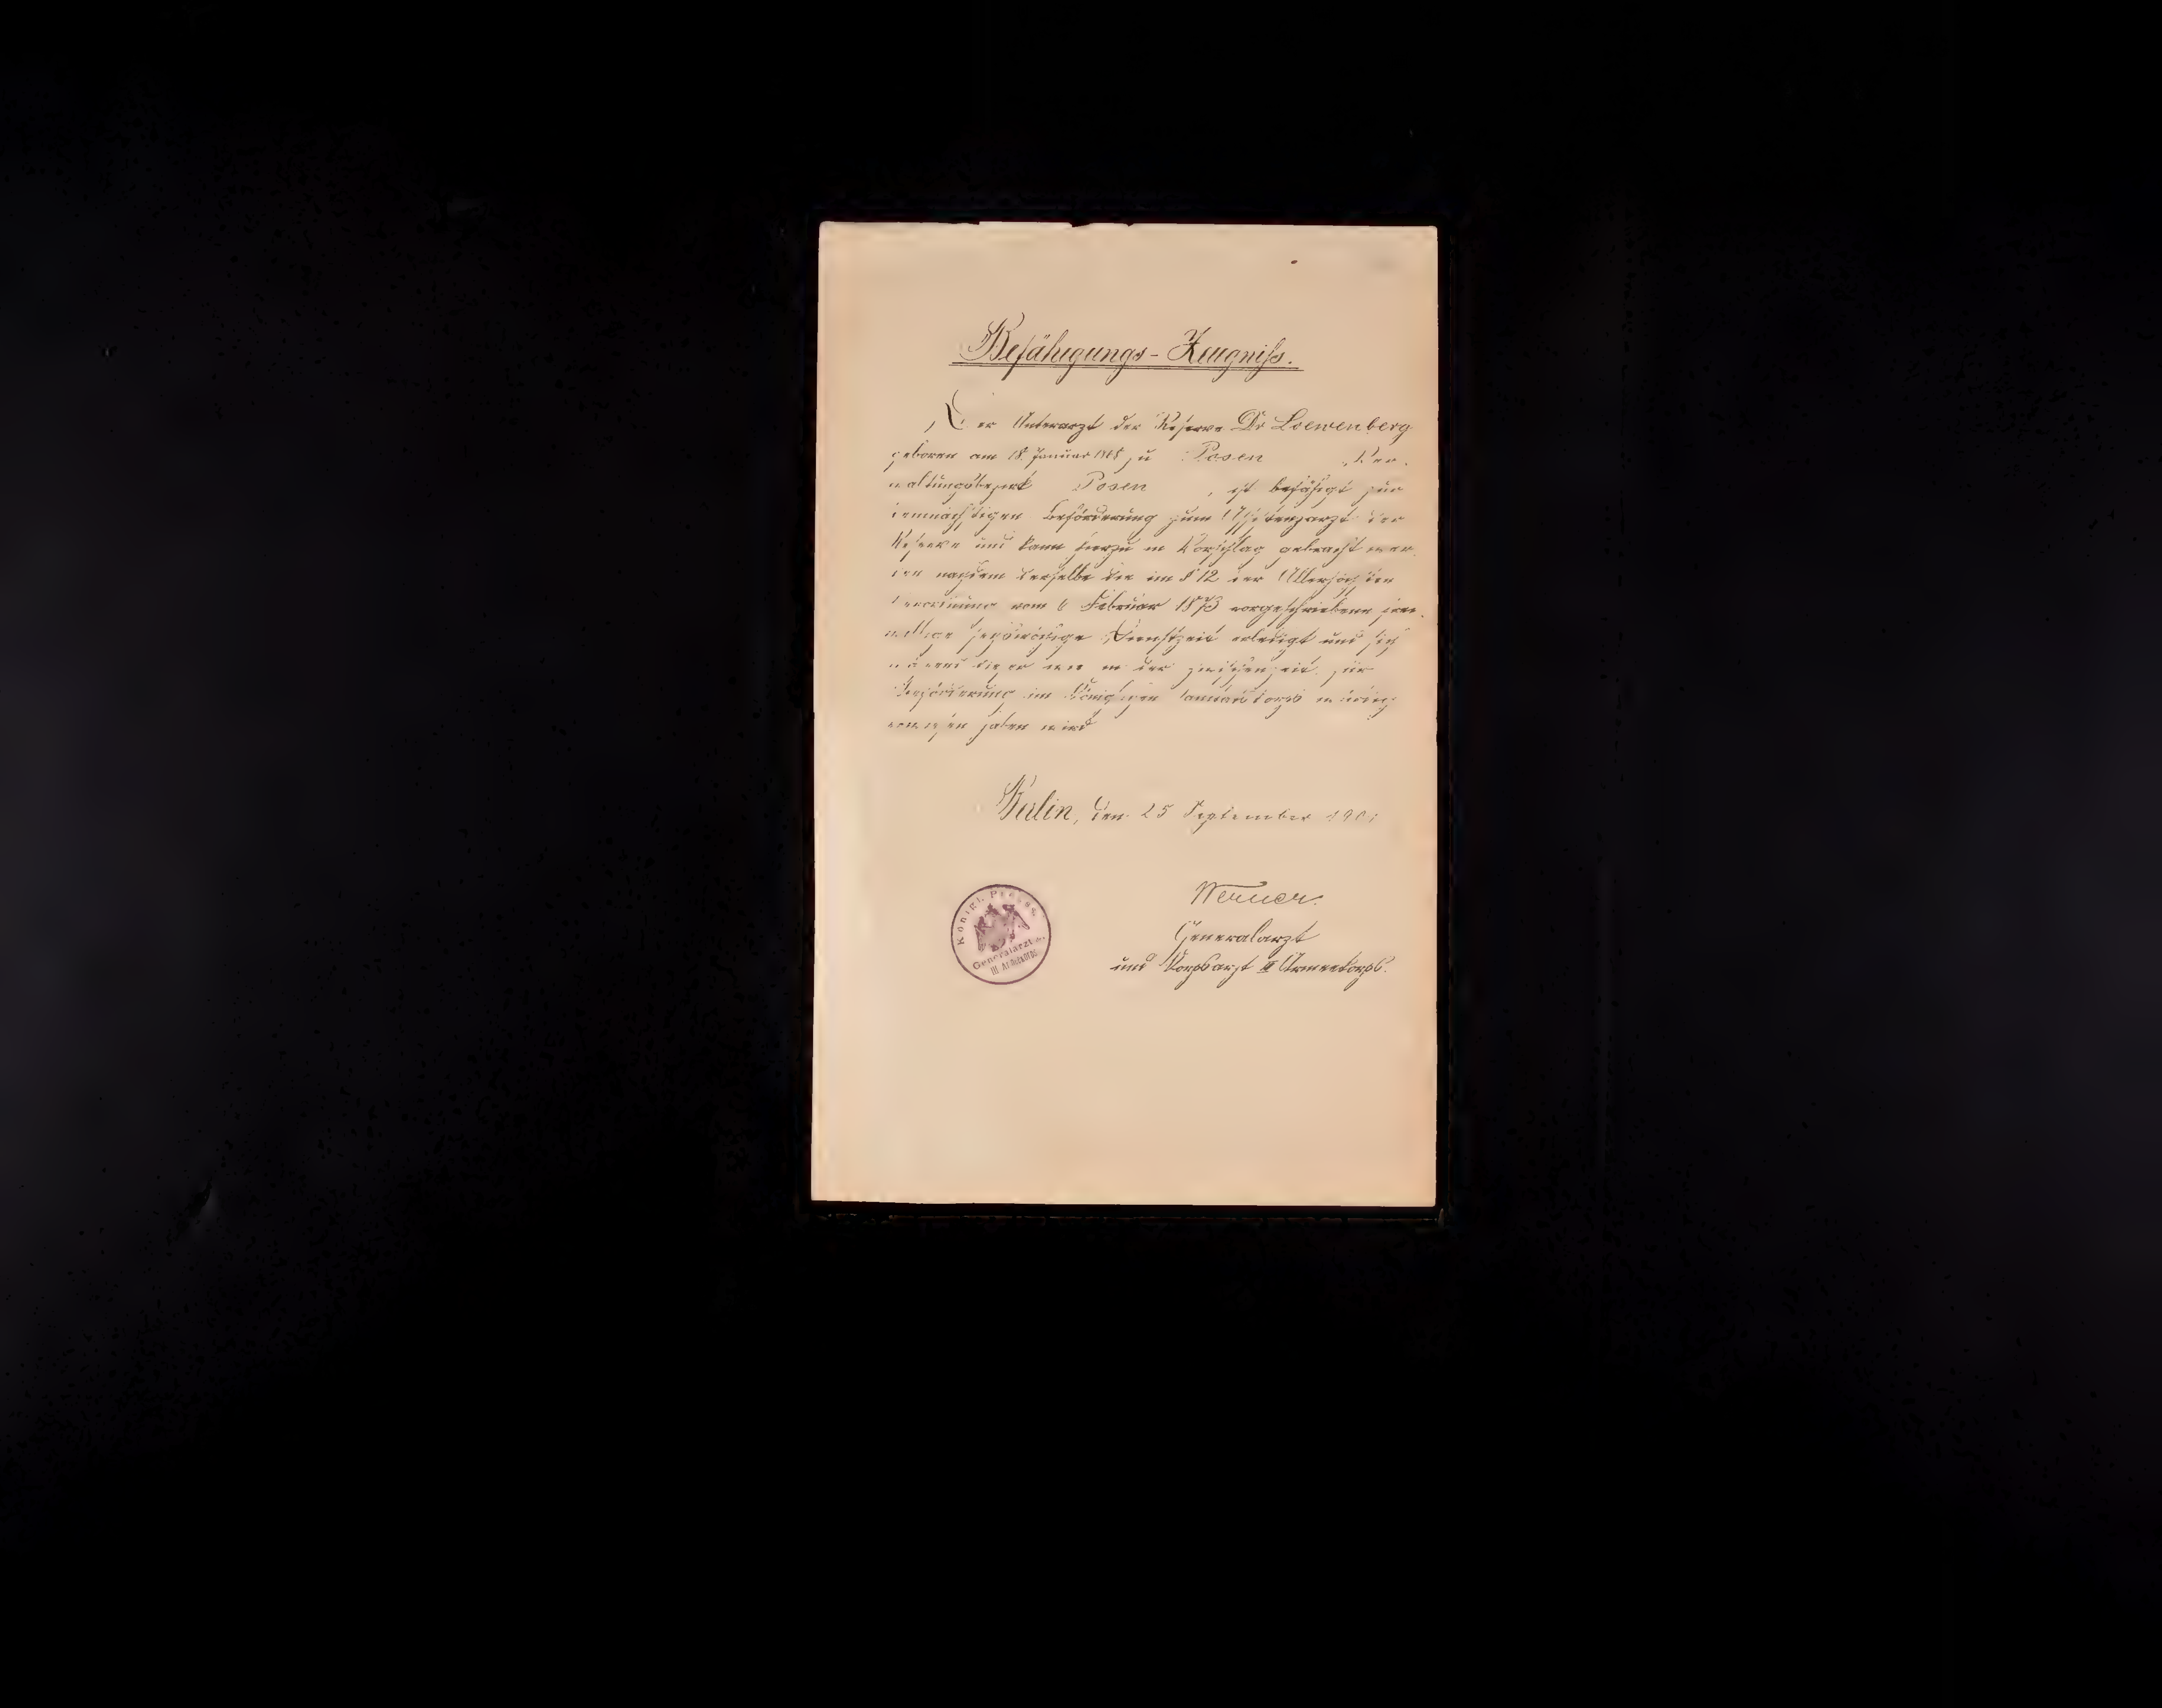 Befähigungs-Zeugniss.
Der Unterarzt der Reserve Dr Loewenberg
geboren am 18. Januar zu Posen, Ver-
waltungsbezirk Posen, ist befähigt zur
demnächstigen Beförderung zum Assistenzarzt der
Reserve und kann hierzu in Vorschlag gebracht wer-
den nachdem derselbe die im § 12 der Allerhöchsten
Verordnung vom 6 Februar 1873 vorgeschriebene frei-
willige sechswöchige Dienstzeit erledigt und sich
während dieser wie in der Zwischenzeit zur
Beförderung im Königlichen Sanitätskorps würdig
erwiesen haben wird
Berlin, den 25 September 1901
Werner.
Generalarzt
und Korpsarzt III Armeekorps.
Königl. Preuss.
Generalarzt
III Armeekorps